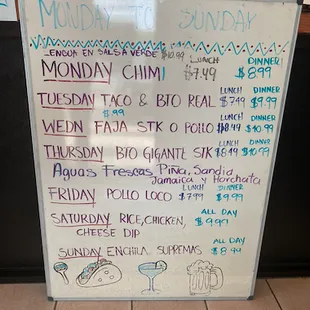 MONDAY TO SUNDAY
LENGUA EN SALSA VERDE $10.99
LUNCH DINNER
MONDAY CHIMI $7.49 $8.99
LUNCH DINNER
TUESDAY TACO & BTO REAL $7.49 $9.99
$.99 LUNCH DINNER
WEDN FAJA STK O POLLO $8.49 $10.99
LUNCH DINNER
THURSDAY BTO GIGANTE STK $8.49 $10.99
Aguas Frescas Piña, Sandia
Jamaica y Horchata
LUNCH DINNER
FRIDAY POLLO LOCO $7.99 $9.99
ALL DAY
SATURDAY RICE, CHICKEN, $9.99
CHEESE DIP
ALL DAY
SUNDAY ENCHILA. SUPREMAS $8.99